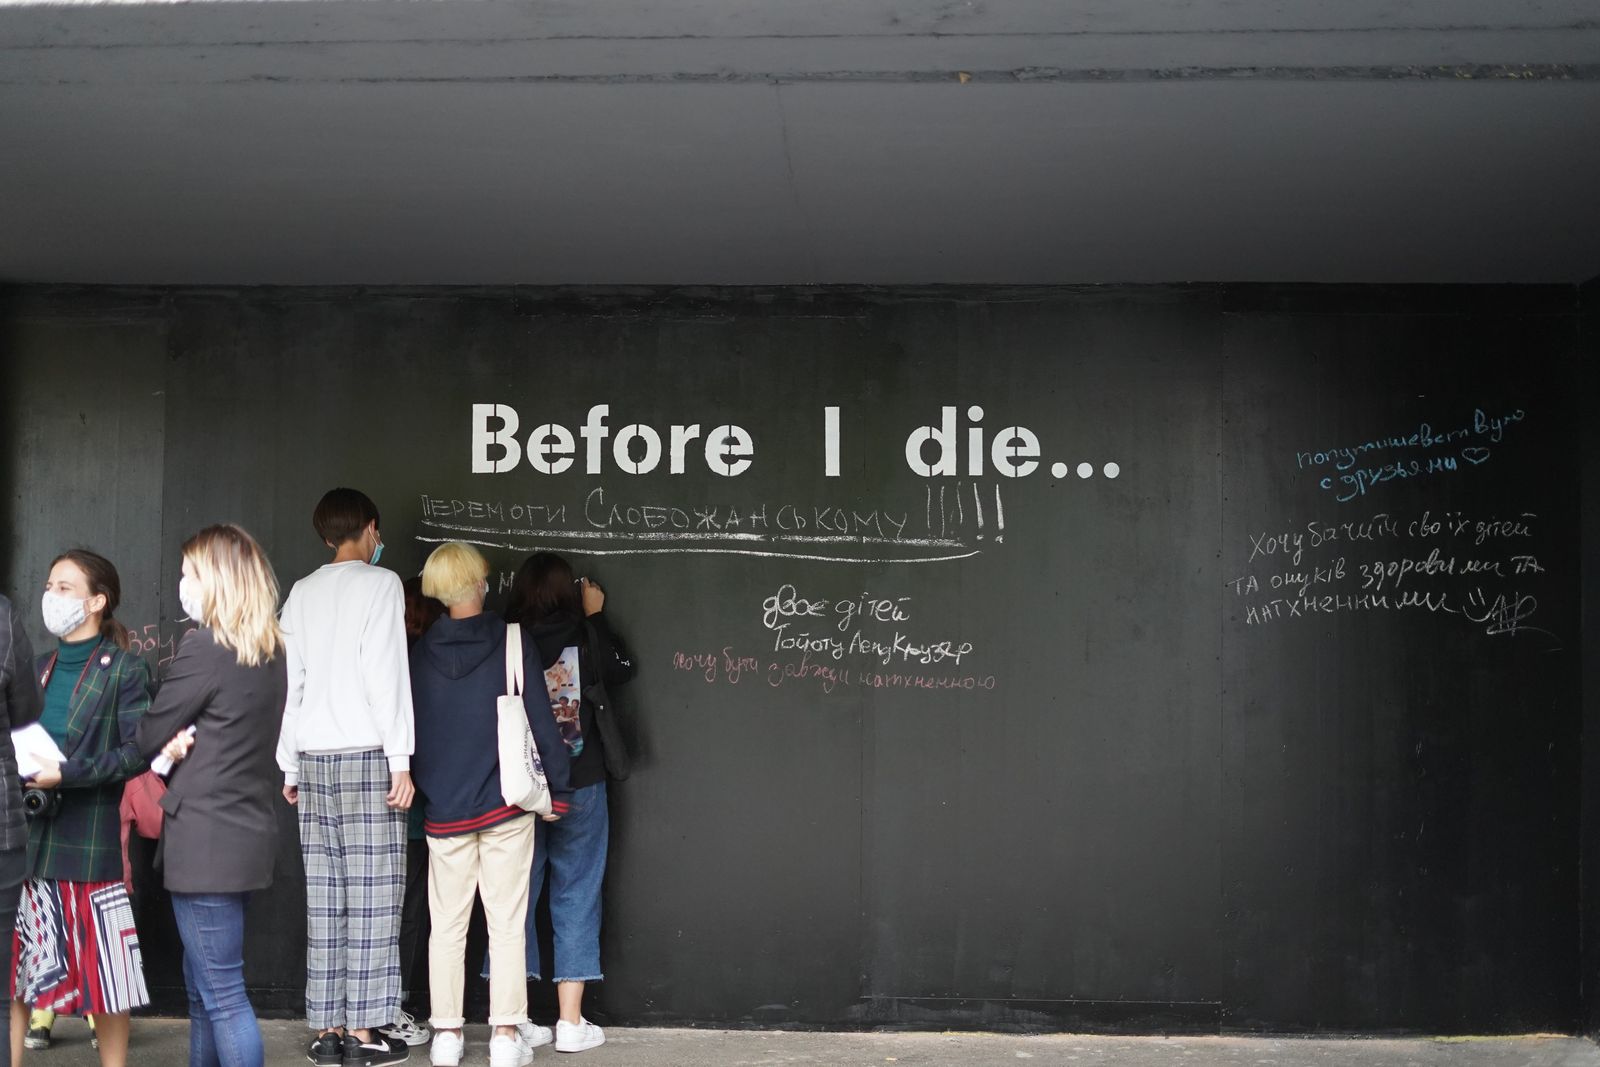 Before I die...
ПЕРЕМОГИ СЛОБОЖАНСЬКОМУ !!!!!
М
двоє дітей
Тойоту Ленд Крузер
хочу бути завжди натхненною
попутишевствую
с друзьями ♡
Хочу бачити своїх дітей
та онуків здоровими та
натхненними